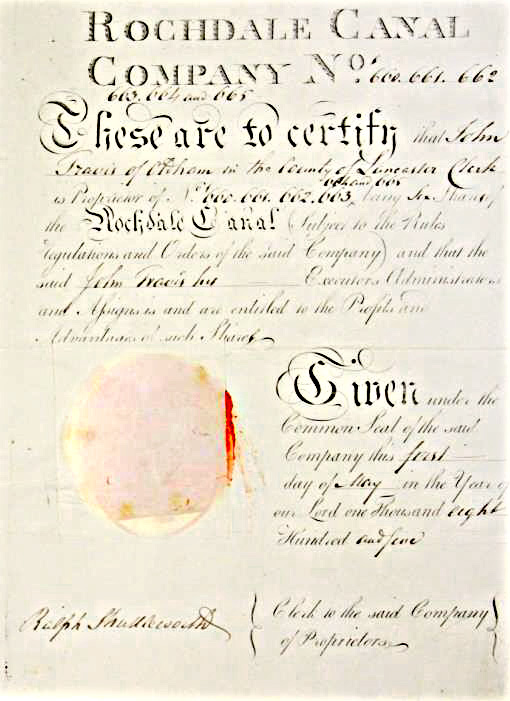 ROCHDALE CANAL
COMPANY No. 660. 661. 662
663. 664 and 665
These are to certify that John
Travis of Oldham in the County of Lancaster Clerk
664 and 665
is Proprietor of No. 660. 661. 662. 663, being Six Shares of
the Rochdale Canal (Subject to the Rules
regulations and Orders of the said Company) and that the
said John Travis his Executors Administrators
and Assigns is and are entitled to the Profits and
Advantages of such Shares
Given under the
Common Seal of the said
Company this first
day of May in the Year of
our Lord one Thousand eight
Hundred and five
Ralph
Clerk to the said Company
of Proprietors